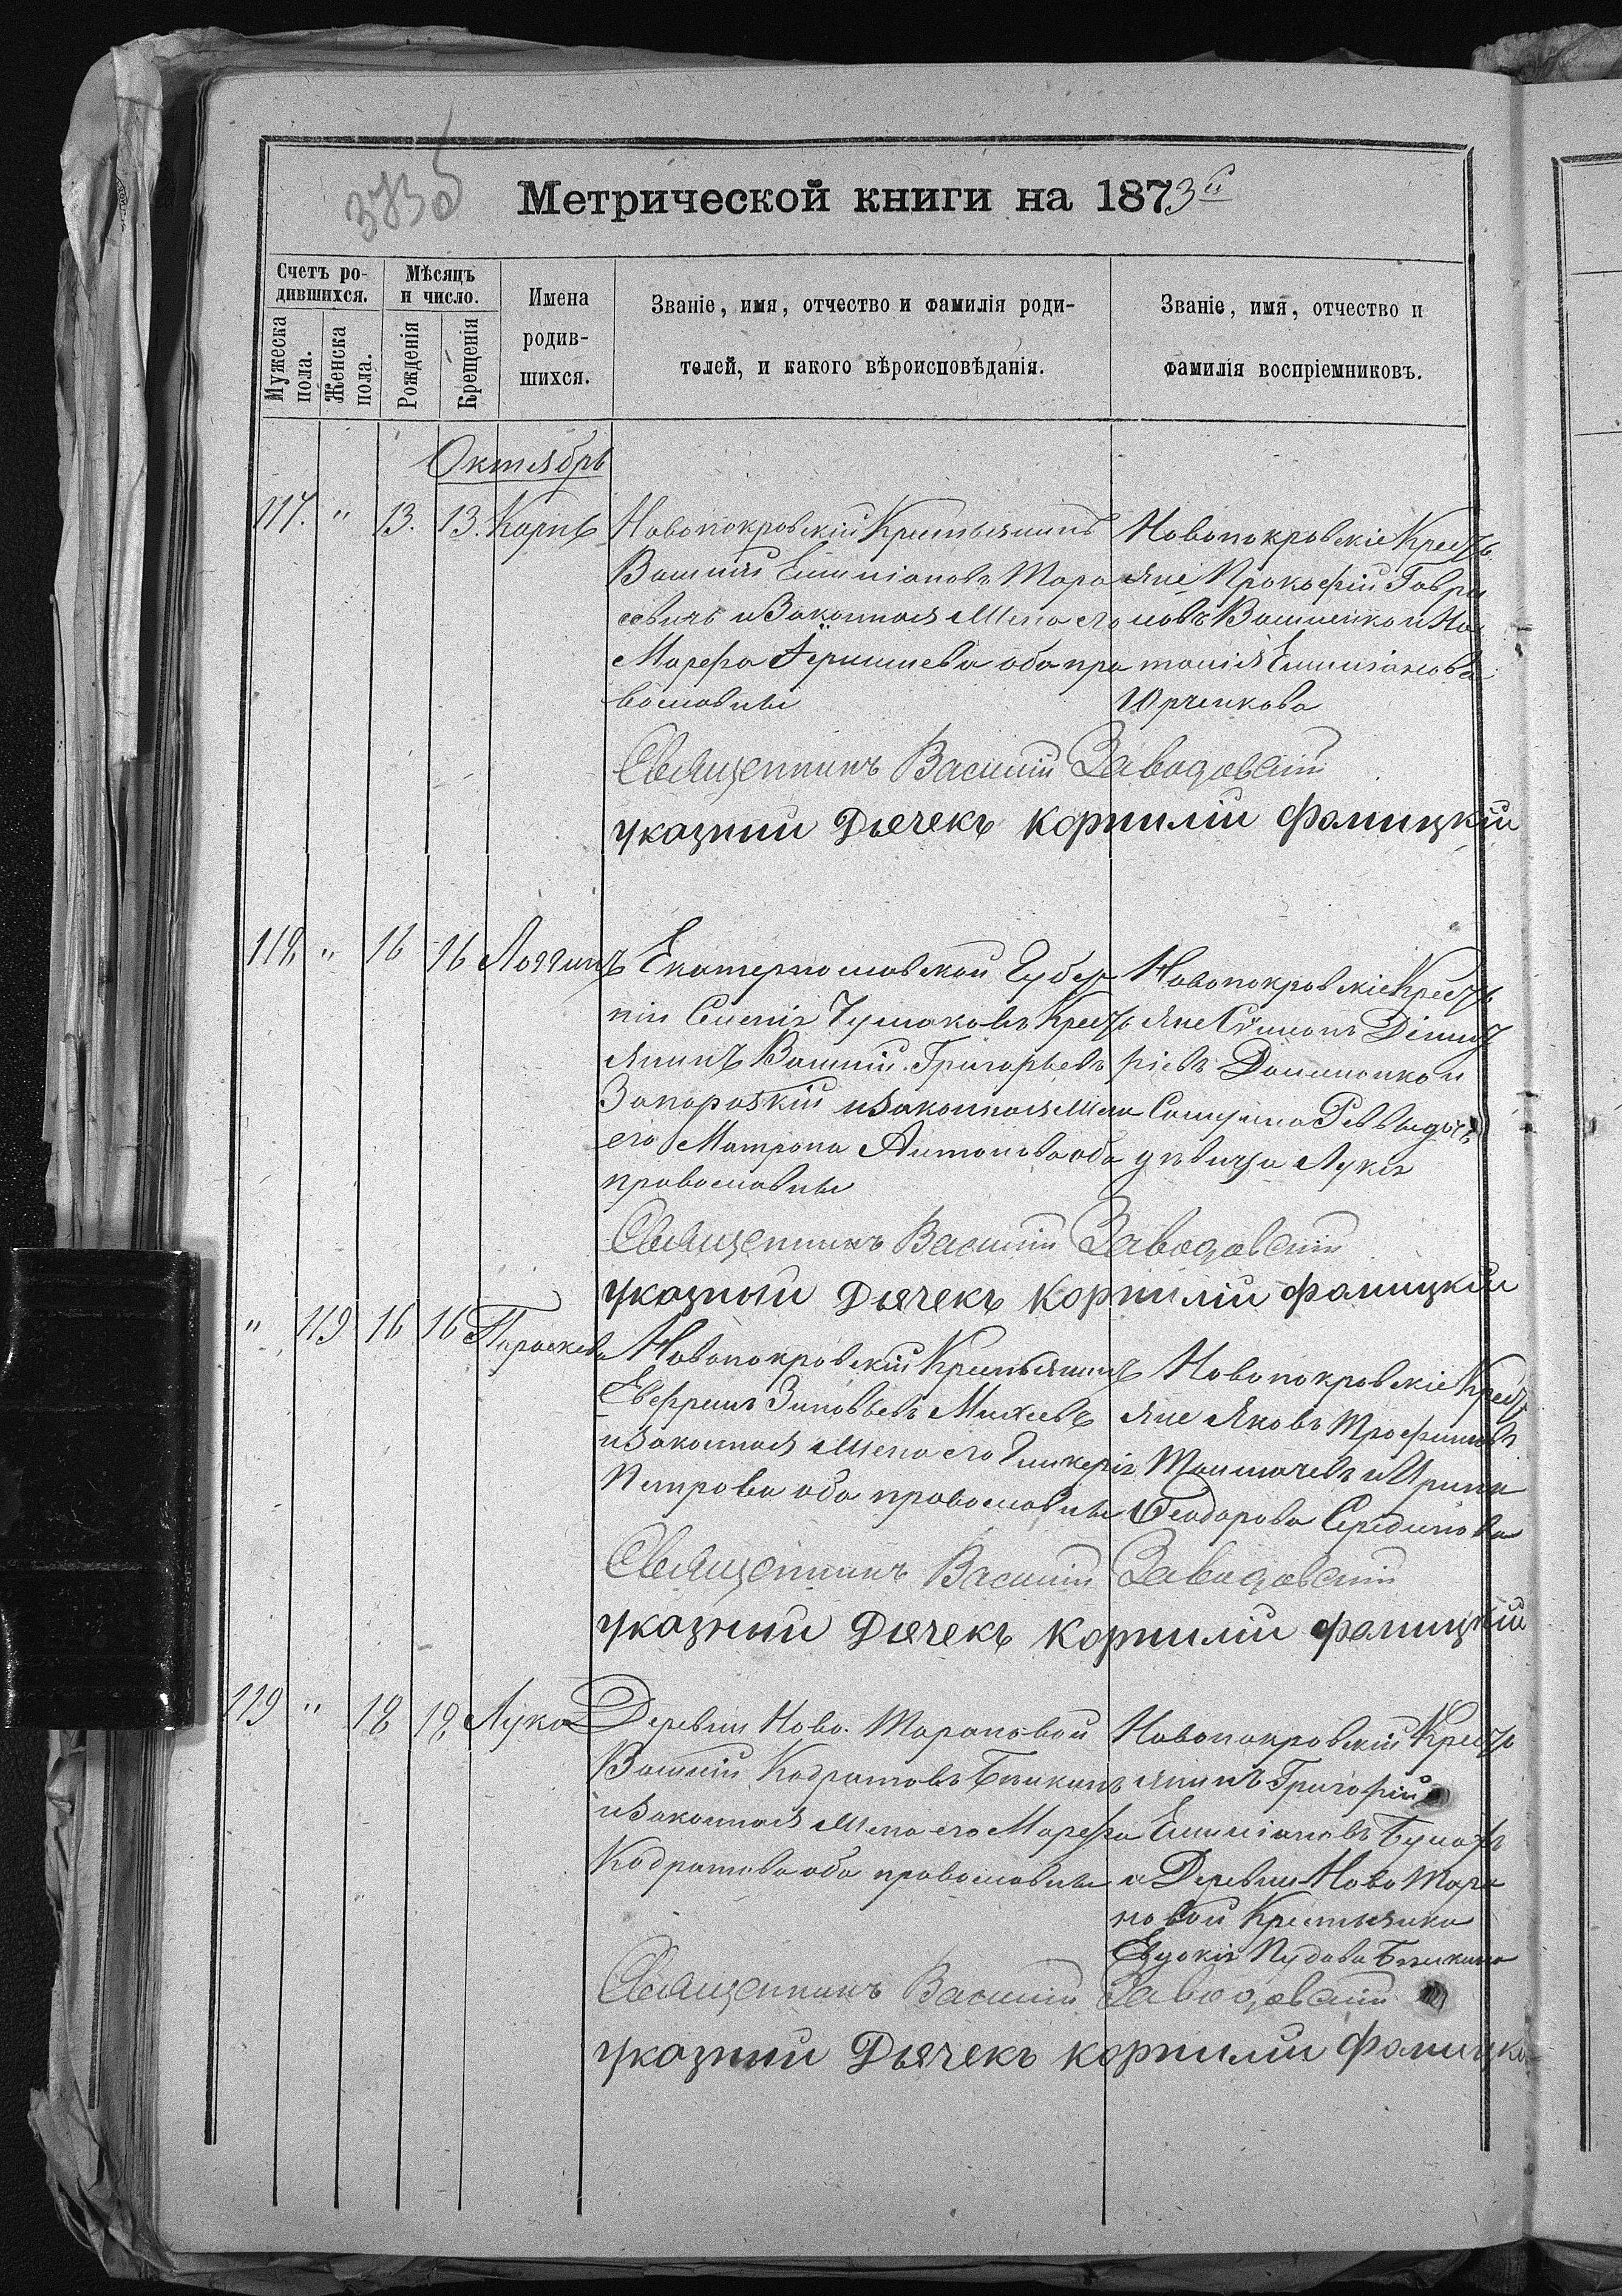 373об
Метрической книги на 1873й
Счетъ ро-
дившихся.
Мужеска
пола.
Женска
пола.
Мѣсяцъ
и число.
Рожденія
Крещенія
Имена
родив-
шихся.
Званіе, имя, отчество и фамилія роди-
телей, и какого вѣроисповѣданія.
Званіе, имя, отчество и
фамилія воспріемниковъ.
Октябрь
117. " 13. 13. Карпъ
Новопокровскій Крестьянинъ
Василій Емиліановъ Тара
севичъ и Законная Жена его
Марфа оба пра
вославны
Новопокровскіе Кресть
яне Прокофій Гаври
ловъ Василенко и На
талія Емиліанова
Юрченкова
Священникъ Василій Заводовскій
указный Дьячекъ Корнилій Фалицкій
118. " 16 16 Логгинъ
Екатеринославской Губер
ніи Селенія Чумаковъ Кресть
янинъ Василій Григорьевъ
Запорозкій и Законная Жена
его Матрона Антонова оба
православны
Новопокровскіе Кресть
яне Сѵмеонъ Диміт
ріевъ Даниленко и
дѣвица Лукія
Священникъ Василій Заводовскій
указный Дьячекъ Корнилій Фалицкій
" 119 16 16 Параскева
Новопокровскій Крестьянинъ
Евфремъ Зиновьевъ Михеевъ
и Законная Жена его Гликерія
Петрова оба православны
Новопокровскіе Крест
яне Яковъ Трофимовъ
Толмачевъ и Ирина
Ѳеодорова Середи
Священникъ Василій Заводовскій
указный Дьячекъ Корнилій Фалицкій
119 " 18 18 Лука
Деревни Ново-Тарановой
Василій Кодратовъ Быкинъ
и Законная Жена его Марфа
Кодратова оба православны
Новопокровскій Кресть
янинъ Григорій
Емиліановъ
и Деревни Ново Тара
новой Крестьянка
Евдокія Пудова Быкина
Священникъ Василій Заводовскій
указный Дьячекъ Корнилій Фалицкі